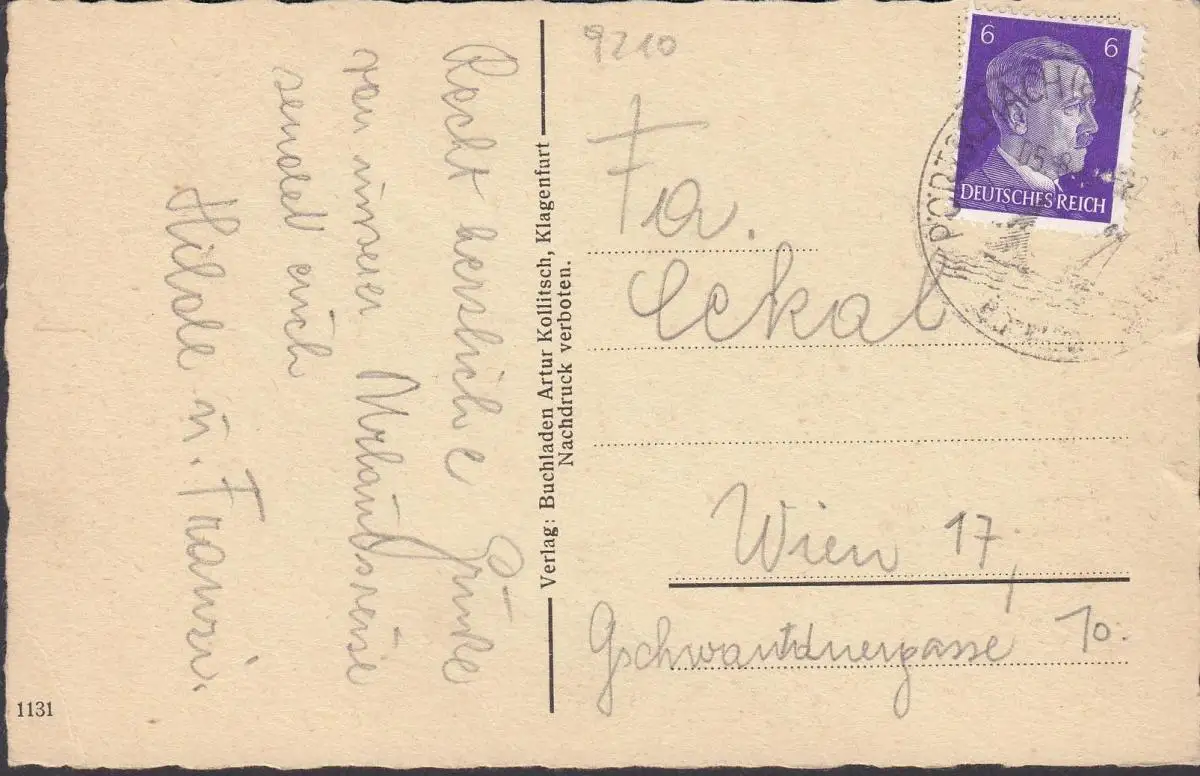 Recht herzliche Grüße
von unserer Urlaubsreise
sendet euch
Hilde u. Franzi.
Verlag: Buchladen Artur Kollitsch, Klagenfurt
Nachdruck verboten.
9210
6 6
DEUTSCHES REICH
PÖRTSCHACH
Fa.
Eckal
Wien 17,
Gschwandnergasse 10.
1131